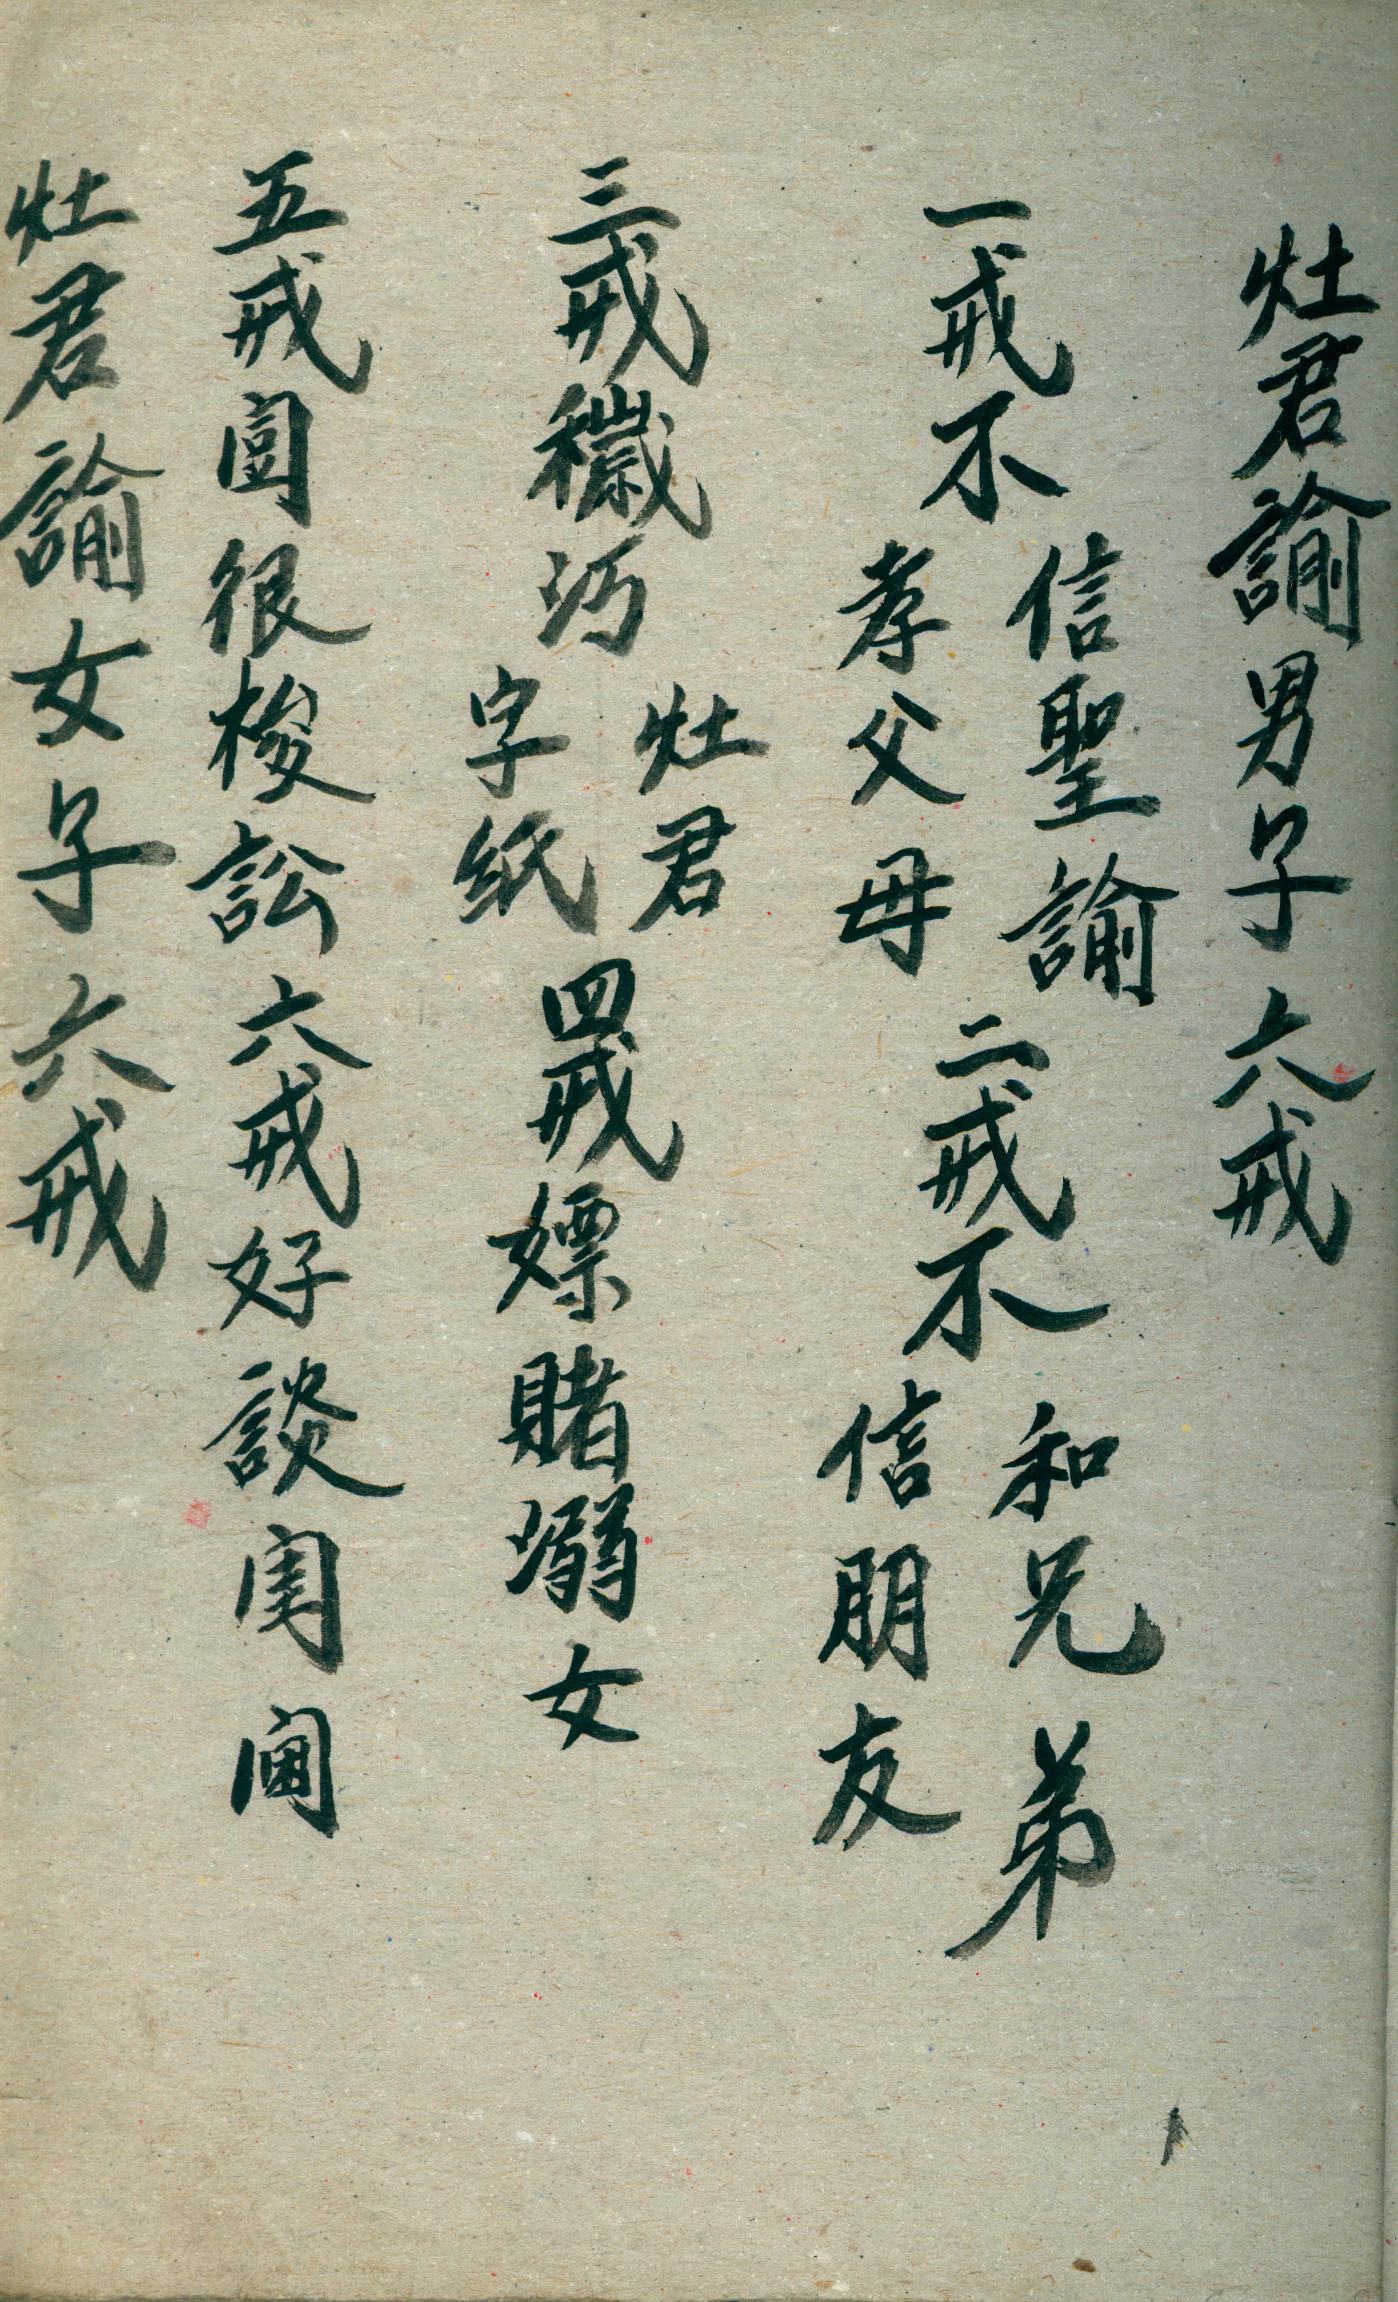 灶君諭男子六戒
一戒不信聖諭孝父母二戒不和兄弟信朋友
三戒穢汚灶君字紙四戒嫖賭溺女
五戒鬪很梭訟六戒好談閨閫
灶君諭女子六戒